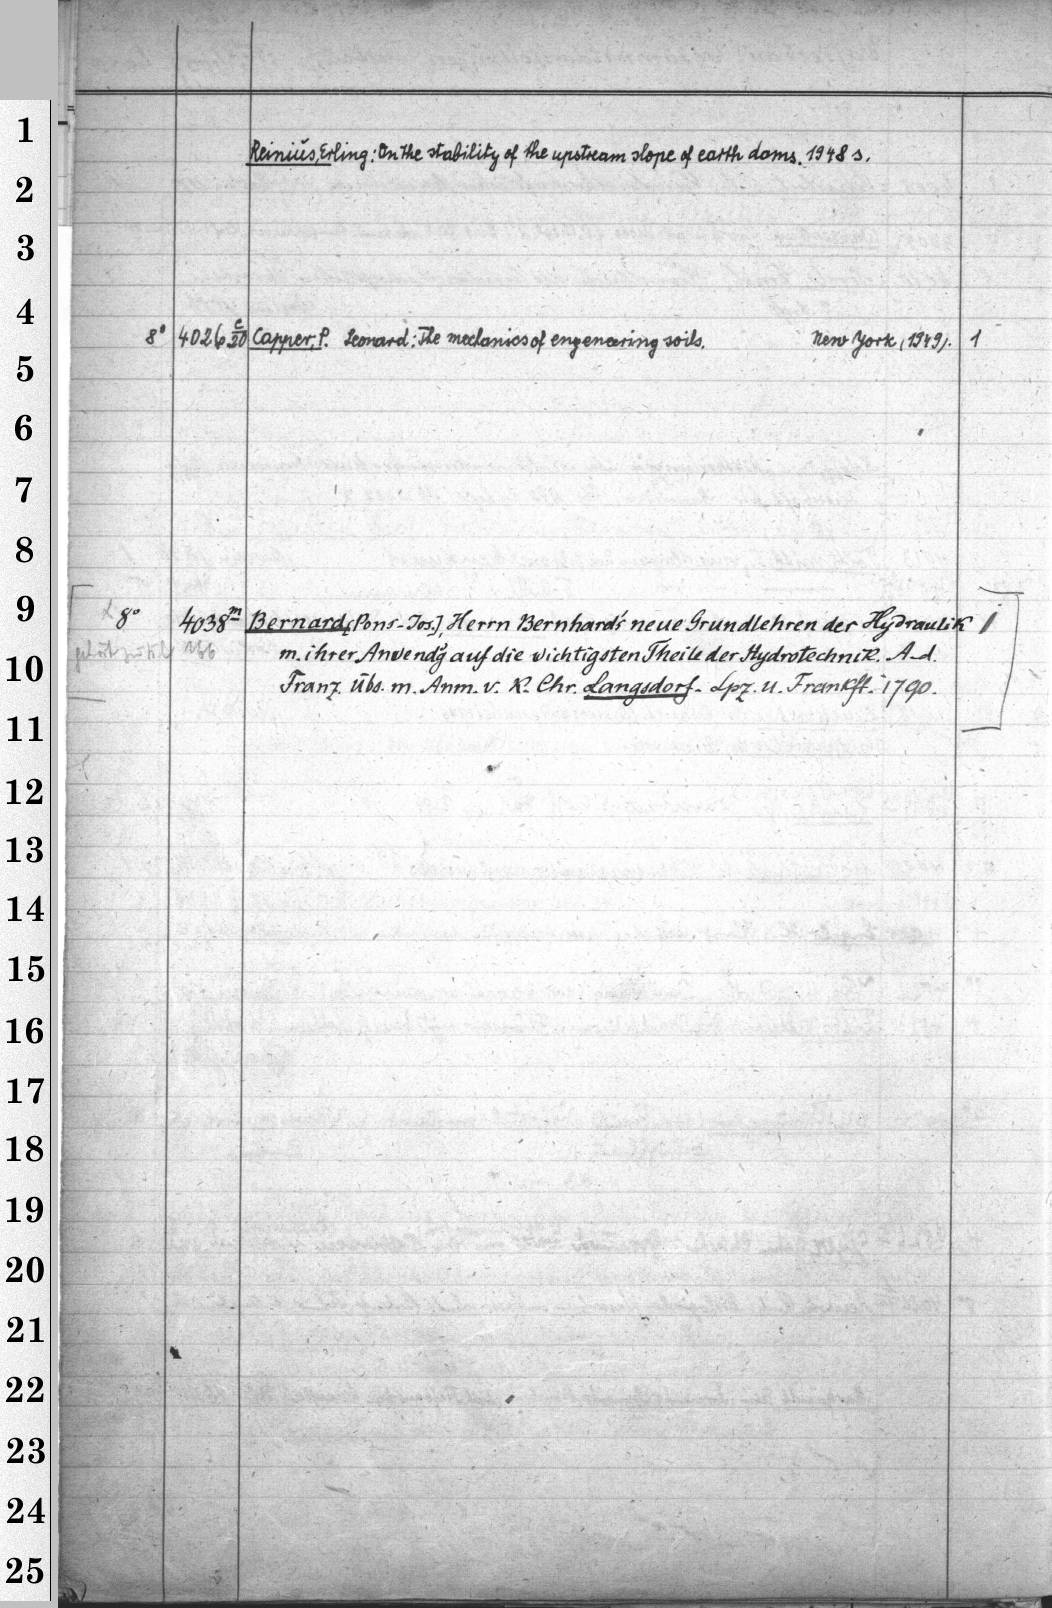 1
Reinius, Erling: On the stability of the upstream slope of earth dams. 1948 s.
2
3
4
8° 4026 c/20 Capper, P. Leonard: The mechanics of engeneering soils. New York (1949). 1
5
6
7
8
9
8° 4038 m Bernard, [Pons-Jos.], Herrn Bernhard's neue Grundlehren der Hydraulik 1
10
m. ihrer Anwendg auf die wichtigsten Theile der Hydrotechnik. A. d.
Franz. übs. m. Anm. v. K. Chr. Langsdorf. Lpz. u. Frankft. 1790.
11
12
13
14
15
16
17
18
19
20
21
22
23
24
25